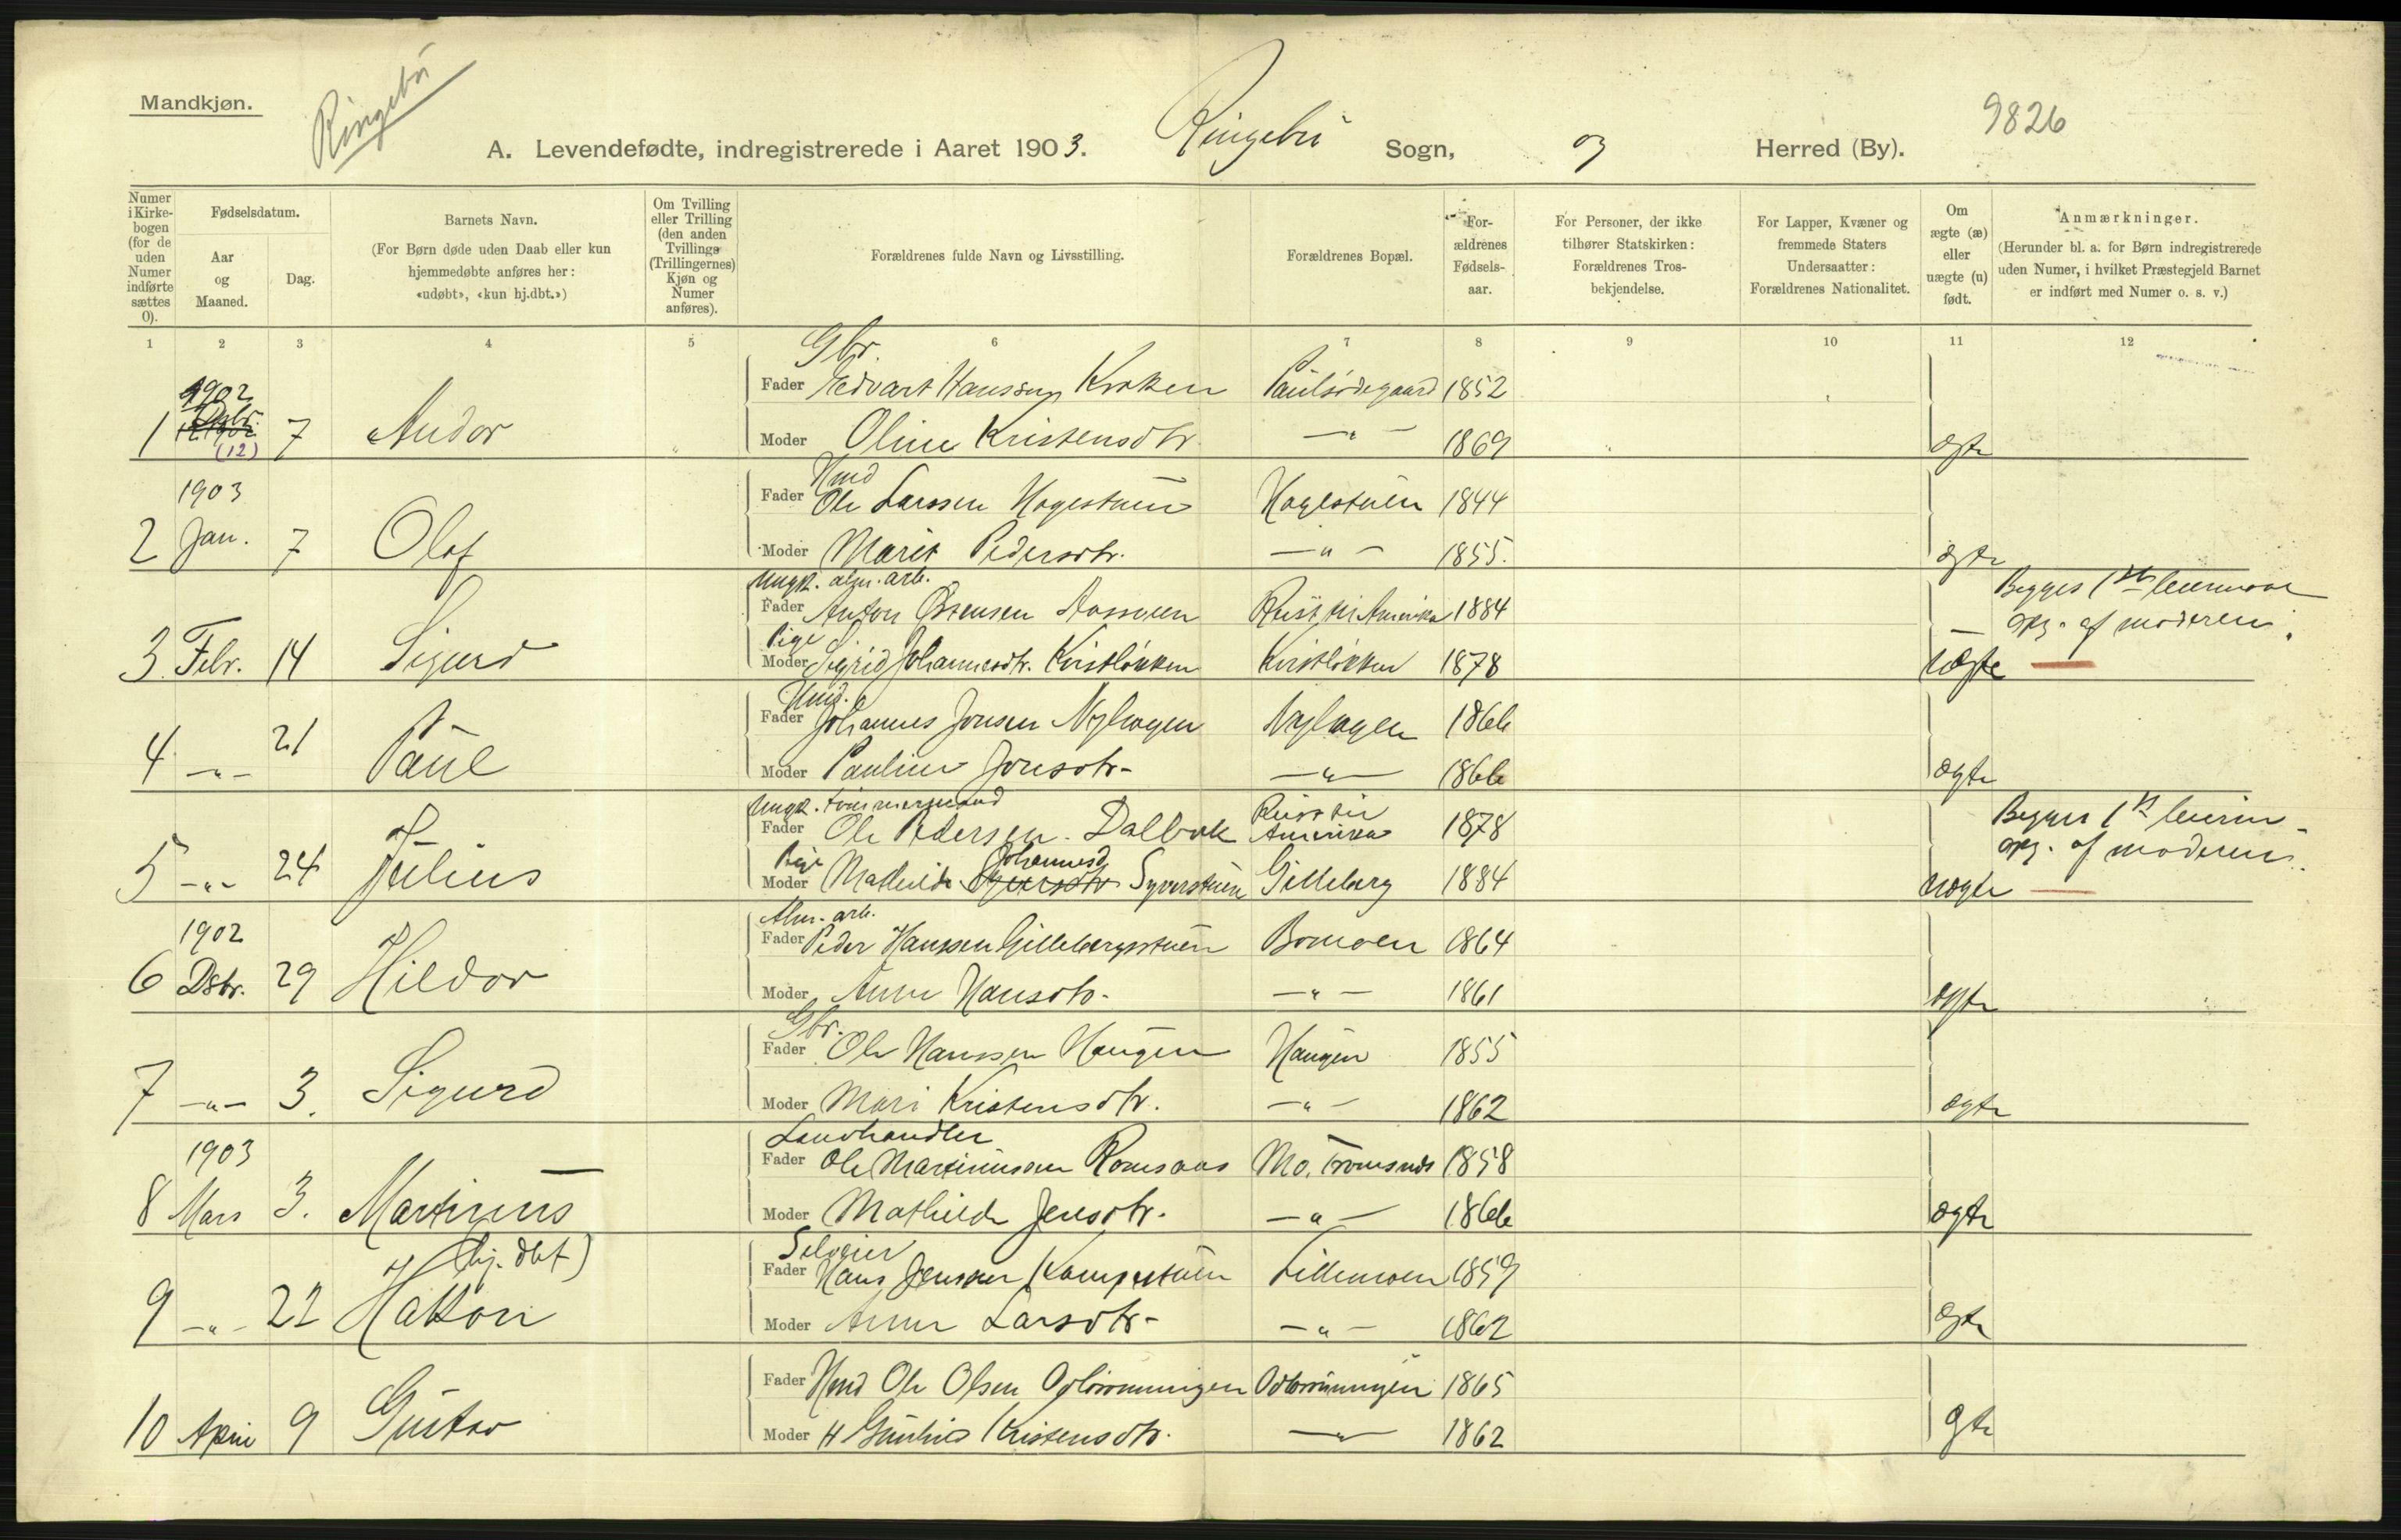 Mandkjøn.
Ringebø
9826
A. Levendefødte, indregistrerede i Aaret 1903. Ringebø Sogn, og Herred (By).
Numer i Kirkebogen (for de uden Numer indførte sættes 0).
Fødselsdatum.
Aar og Maaned.
Dag.
Barnets Navn.
(For Børn døde uden Daab eller kun hjemmedøbte anføres her: «udøbt», «kun hj.dbt.»)
Om Tvilling eller Trilling (den anden Tvillings (Trillingernes) Kjøn og Numer anføres).
Forældrenes fulde Navn og Livsstilling.
Forældrenes Bopæl.
Forældrenes Fødselsaar.
For Personer, der ikke tilhører Statskirken: Forældrenes Trosbekjendelse.
For Lapper, Kvæner og fremmede Staters Undersaatter: Forældrenes Nationalitet.
Om ægte (æ) eller uægte (u) født.
Anmærkninger.
(Herunder bl. a. for Børn indregistrerede uden Numer, i hvilket Præstegjeld Barnet er indført med Numer o. s. v.)
1 2 3 4 5 6 7 8 9 10 11 12
Gbr.
1902 Fader Edvart Hanssen Kroken Paulsødegaard 1852
1 Dsbr. (12) 7 Andor Moder Oline Kristensdtr. -"- 1869 ægte
Hmd
1903 Fader Ole Larssen Hagestuen Hagestuen 1844
2 Jan. 7 Olaf Moder Marit Pedersdtr. -"- 1855. ægte
Ungk. alm. arb. Begges 1ste leiermaal
Fader Anton Østensen Aasmoen Reist til Amerika 1884 opg. af moderen.
Pige
3. Febr. 14 Sigurd Moder Sigrid Johannesdtr. Kvistløkken Kvistløkken 1878 uægte
Hmd.
Fader Johannes Jonsen Nyhagen Nyhagen 1866
4 -"- 21 Paul Moder Pauline Jonsdtr. -"- 1866 ægte
Ungk. tømmermand Reist til Begges 1ste leierm.
Fader Ole Pedersen Dalbak Amerika 1878 opg. af moderen.
Pige Johannesd
5 -"- 24 Julius Moder Mathilde Syverstuen Gilleberg 1884 uægte
Alm. arb.
1902 Fader Peder Hanssen Gillebergstuen Bomoen 1864
6 Dsbr. 29 Hildor Moder Anne Hansdtr. -"- 1861 ægte
Gbr.
Fader Ole Hanssen Haugen Haugen 1855
7 -"- 3. Sigurd Moder Mari Kristensdtr. -"- 1862 ægte
Landhandler
1903 Fader Ole Martinussen Romsaas Mo. Tromsnes 1858
8 Mars 3. Martinus Moder Mathilde Jensdtr. -"- 1866 ægte
(hj. dbt) Selveier
Fader Hans Jenssen Kampestuen Lillemoen 1859
9 -"- 22 Hakon Moder Anne Larsdtr. -"- 1862 ægte
Fader Hmd Ole Olsen Odlonningen 1865
10 April 9 Gustav Moder H Gunhild Kristensdtr. -"- 1862 ægte